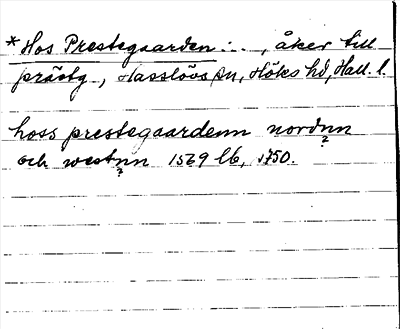 *Hos Prestegaarden: .. , åker till
prästg., Hasslövs sn, Höks hd, Hall. l.
hoss prestegaardenn nordnn
och westnn 1569 lb, 1750.
? ?